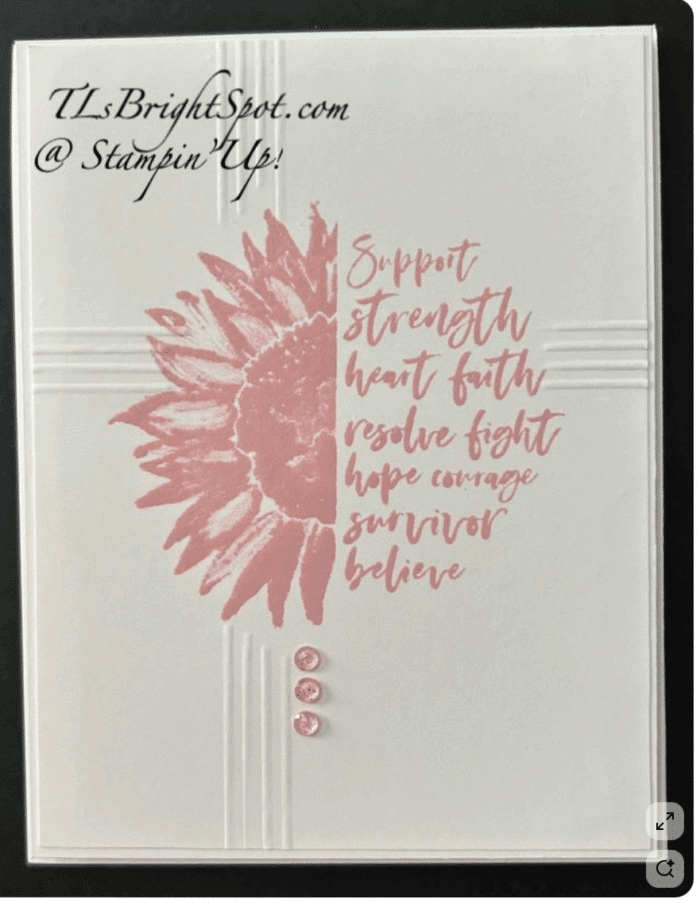 TLsBrightSpot.com
@ Stampin' Up!
Support
strength
heart faith
resolve fight
hope courage
survivor
believe